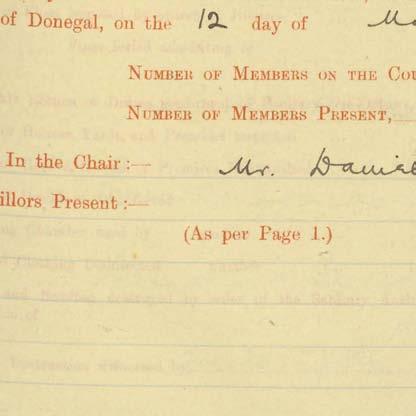 of Donegal, on the 12 day of
Number of Members on the Cou
Number of Members Present,
In the Chair:— Mr. Daniel
illors Present:—
(As per Page 1.)